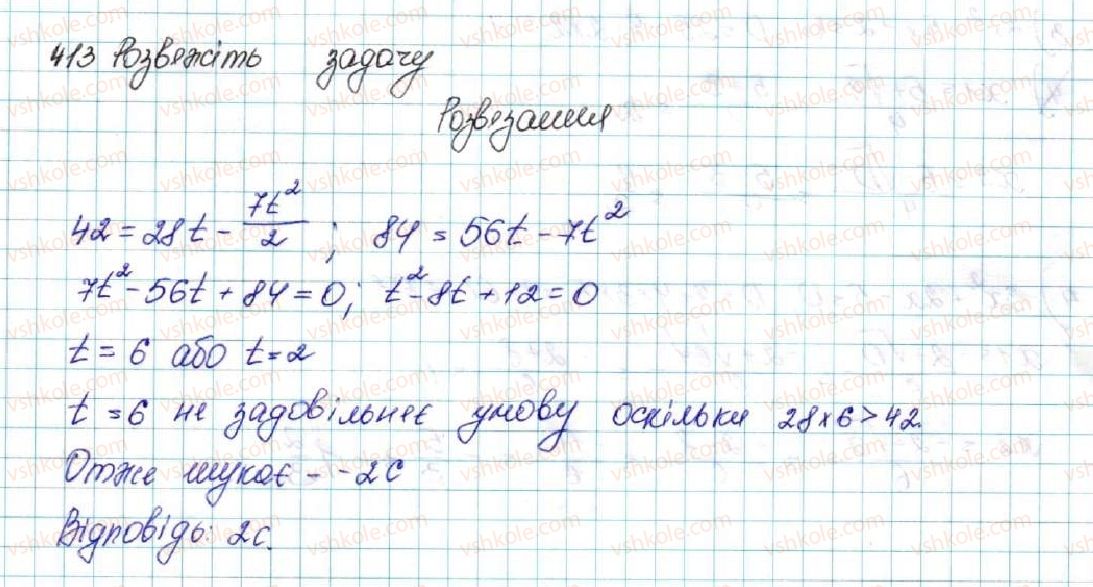 413 Розвяжіть задачу
Розвязання
42 = 28t - 7t²/2 ; 84 = 56t - 7t²
7t² - 56t + 84 = 0; t² - 8t + 12 = 0
t = 6 або t = 2
t = 6 не задовільнює умову оскільки 28x6 > 42.
Отже шукає - - 2с
Відповідь: 2с.